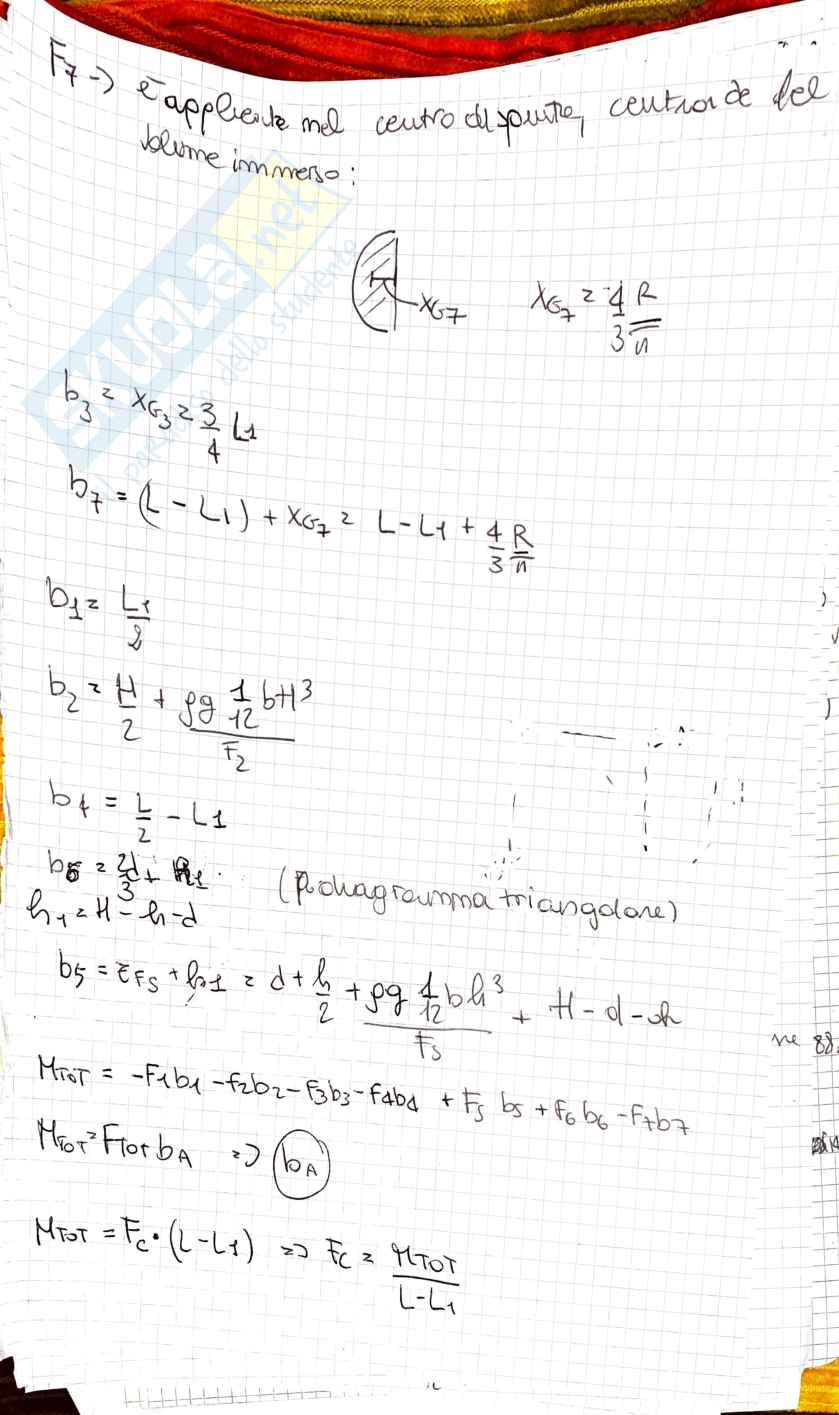 F7 -> è applicata nel centro di spinta, centroide del
volume immerso:
XG7
XG7 = 4/3 R/π
b3 = XG3 = 3/4 L1
b7 = (L - L1) + XG7 = L - L1 + 4/3 R/π
b1 = L1/2
b2 = H/2 + ρg 1/12 bH³ / F2
b4 = L/2 - L1
b6 = 2/3 d + h1
(Per diagramma triangolare)
h1 = H - h - d
b5 = ξF5 + h1 = d + h/2 + ρg 1/12 bh³ / F5 + H - d - h
MTOT = -F1b1 - F2b2 - F3b3 - F4b4 + F5 b5 + F6 b6 - F7b7
MTOT = FTOT bA => bA
MTOT = FC · (L - L1) => FC = MTOT / L - L1
SKUOLA.net
il paradiso dello studente